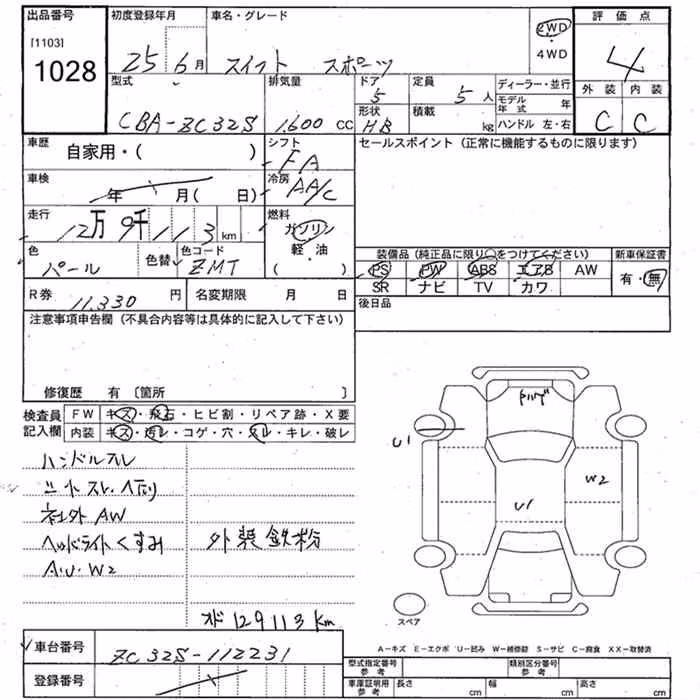 出品番号 初度登録年月 車名・グレード 評価点
[1103]
1028
25 6月 スイフト スポーツ
2WD
・
4WD
4
型式 排気量 ドア 定員 ディーラー・並行 外装 内装
5 5人 モデル年式 年
CBA-ZC32S 1,600 CC 形状 積載 C C
HB kg ハンドル 左・右
車歴 自家用・( ) シフト セールスポイント(正常に機能するものに限ります)
FA
車検 年 月( 日) 冷房 AA/C
走行 12万9千113km 燃料 ガソリン
軽・油
( )
色 パール 色替 色コード ZMT
装備品(純正品に限り○をつけてください) 新車保証書
PS PW ABS エアB AW 有・無
SR ナビ TV カワ
R券 11,330 円 名変期限 月 日 後日品
注意事項申告欄(不具合内容等は具体的に記入して下さい)
修復歴 有〔箇所 〕
検査員記入欄 FW キズ・飛石・ヒビ割・リペア跡・X要
内装 キズ・汚レ・コゲ・穴・スレ・キレ・破レ
ハンドルスレ
社外AW
ヘッドライトくすみ 外装鉄粉
A.U.W2
129113km
U1
W2
U1
スペア
A-キズ E-エクボ U-凹み W-補修跡 S-サビ C-腐食 XX-取替済
車台番号 ZC32S-112231
登録番号
型式指定番号 参考 類別区分番号 参考
車庫証明用 参考 長さ cm 幅 cm 高さ cm